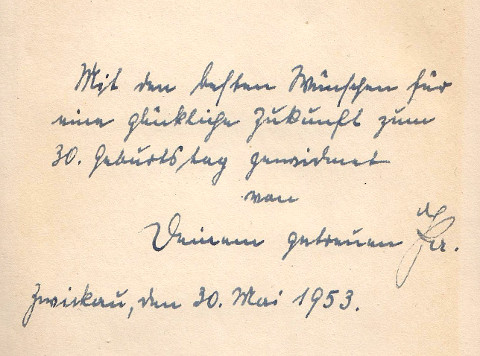 Mit den besten Wünschen für
eine glückliche Zukunft zum
30. Geburtstag gewidmet
von
Deinem getreuen
Zwickau, den 30. Mai 1953.